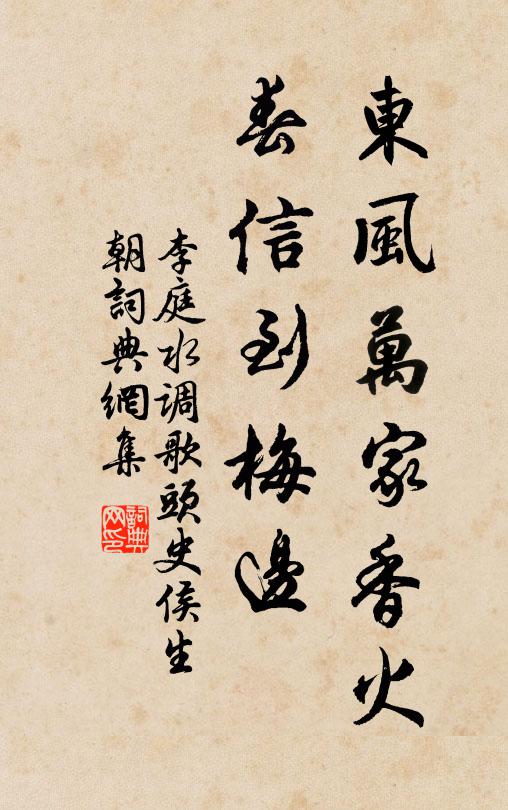 東風萬家香火
春信到梅邊
李庭水调歌頭史侯生
朝詞典網集
詞典
网印